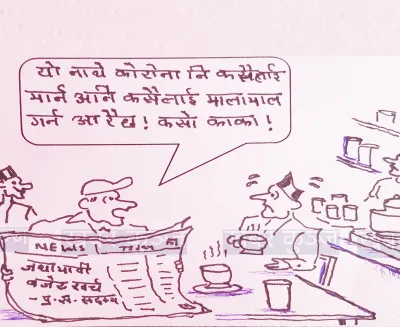 यो नाथे कोरोना नि कसैलाई
मार्न अनि कसैलाई मालामाल
गर्न आरैछ! कसो काका!
NEWS
जथाभावी
बजेट खर्च
- प्र. स. सदस्य